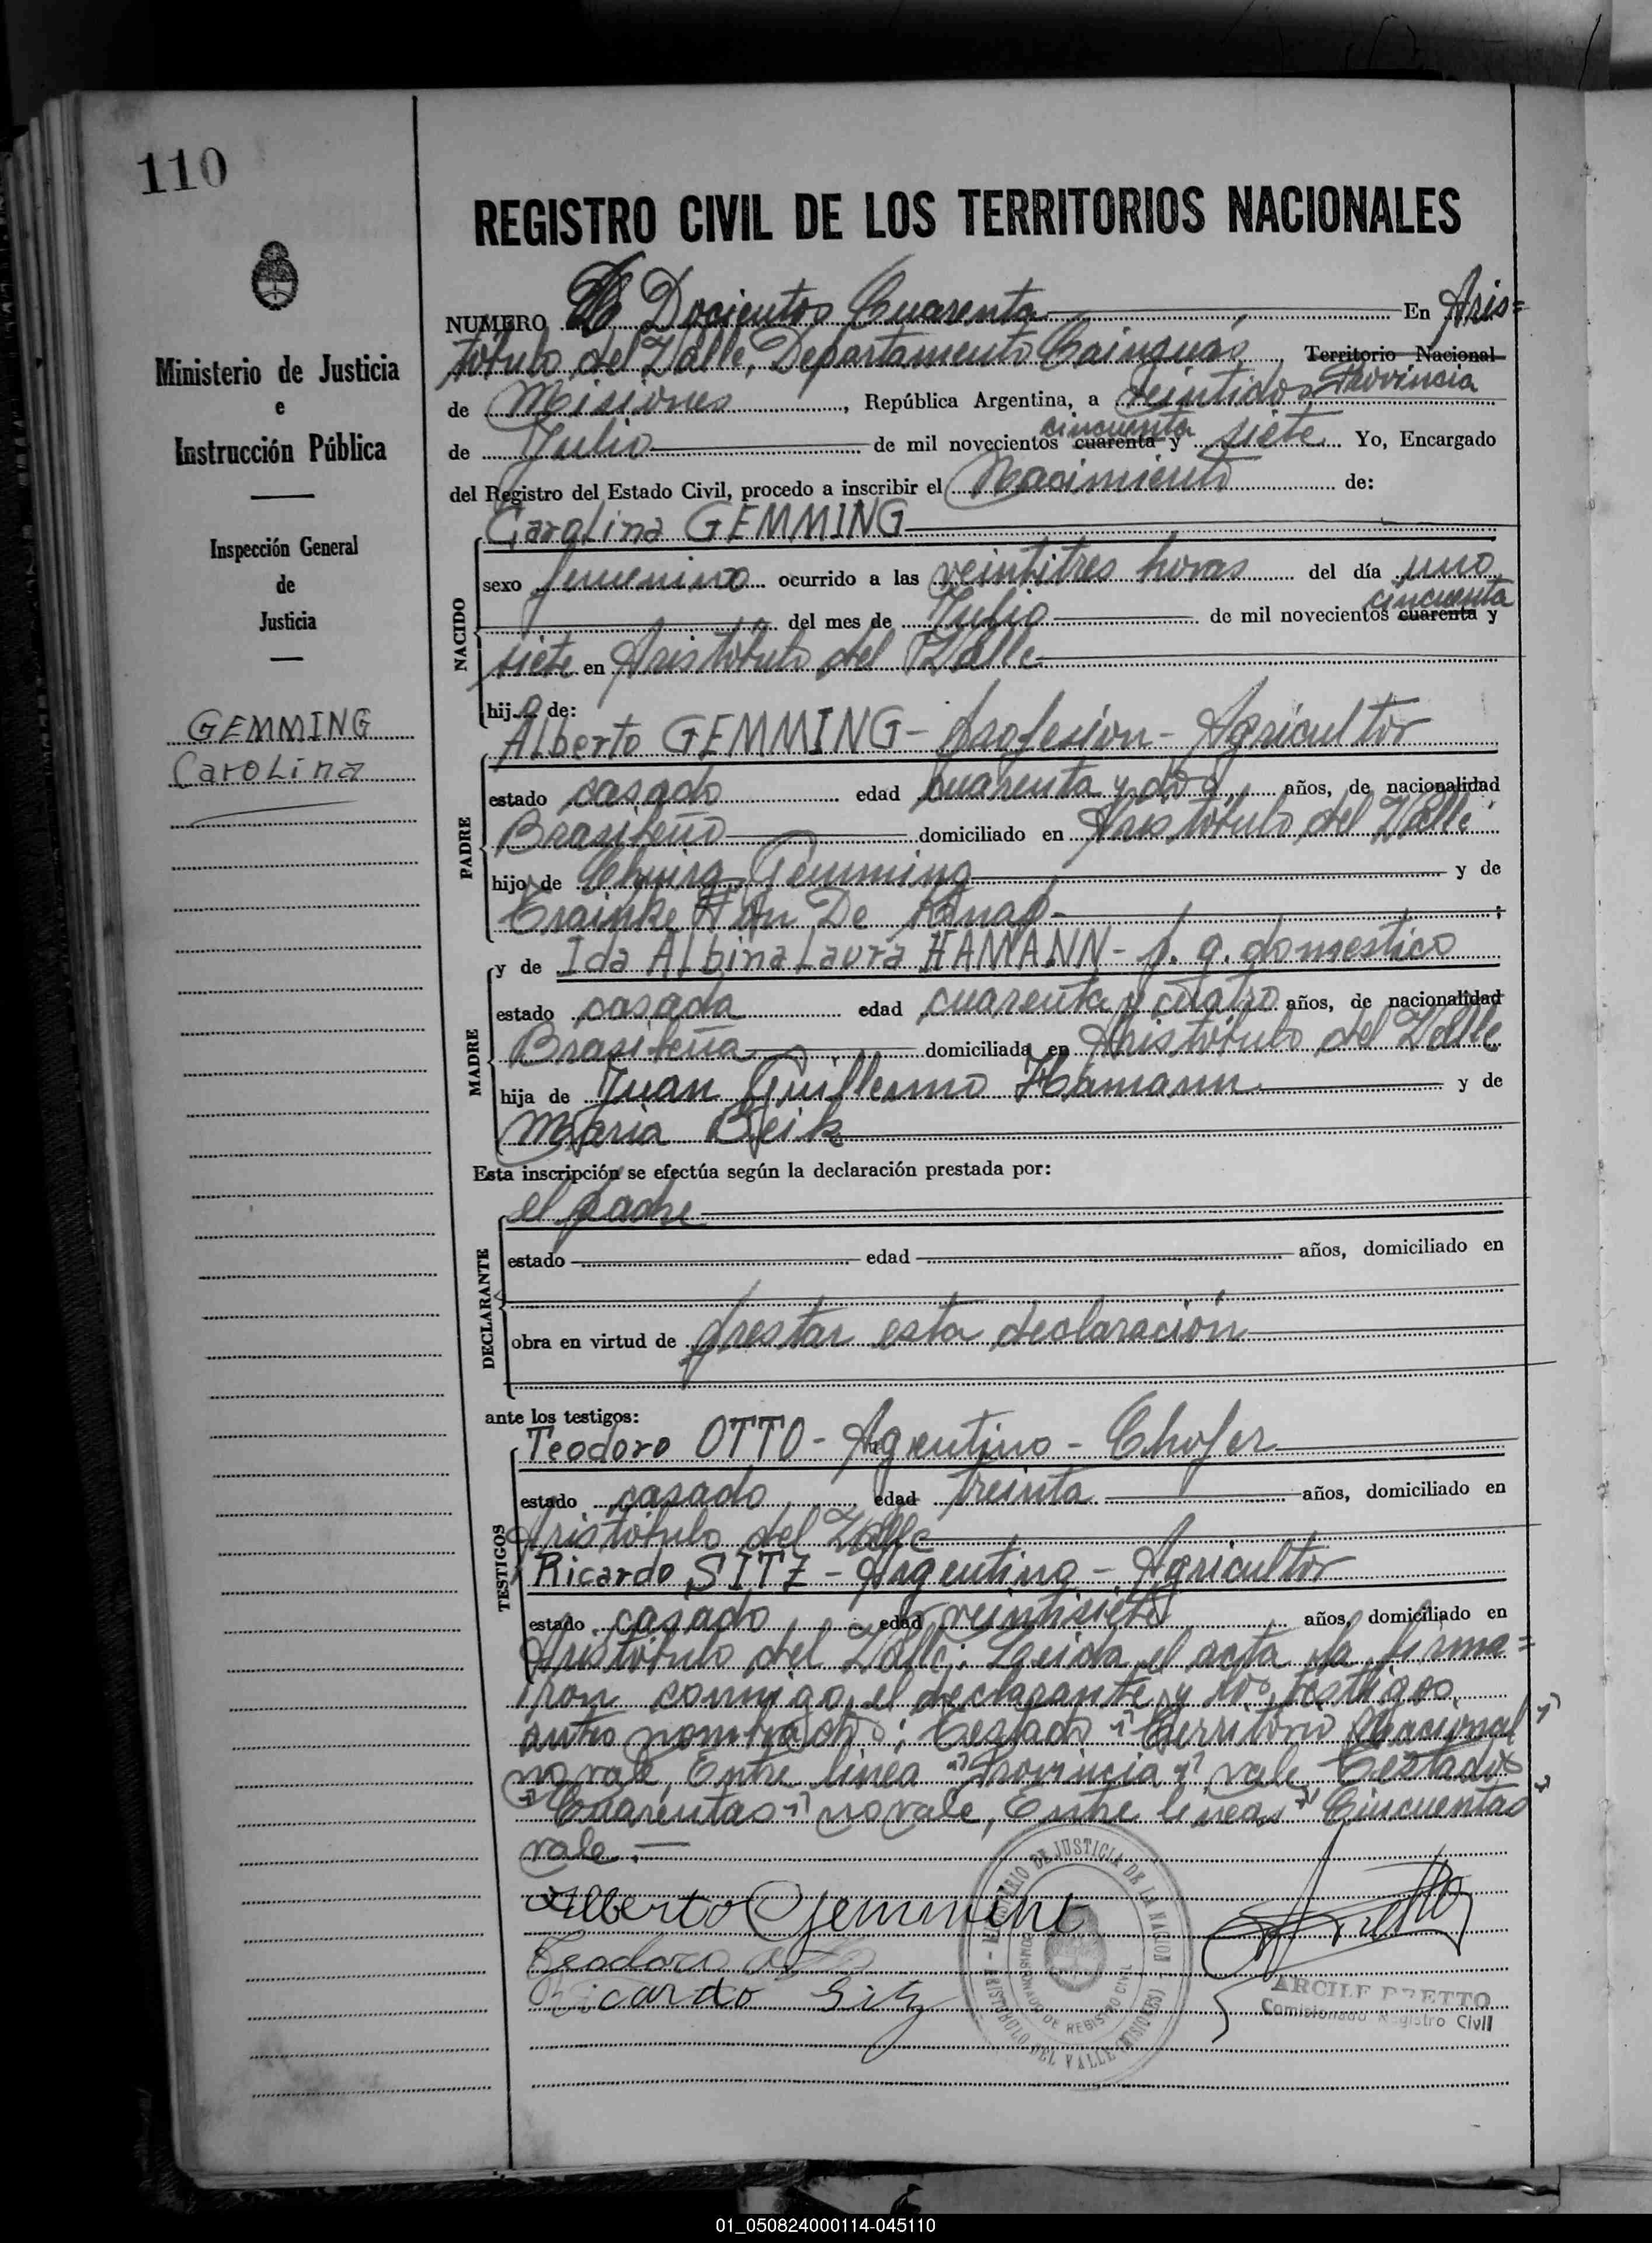 110
REGISTRO CIVIL DE LOS TERRITORIOS NACIONALES
Ministerio de Justicia
e
Instrucción Pública
Inspección General
de
Justicia
GEMMING
Carolina
NUMERO Docientos Cuarenta En Aris=
tóbulo del Valle, Departamento Cainguás, Territorio Nacional
Provincia
de Misiones, República Argentina, a veintidos
cincuenta
de Julio de mil novecientos cuarenta y siete Yo, Encargado
del Registro del Estado Civil, procedo a inscribir el Nacimiento de:
Carolina GEMMING
NACIDO
sexo femenino ocurrido a las veintitres horas del día uno
cincuenta
del mes de Julio de mil novecientos cuarenta y
siete en Aristóbulo del Valle
hija de:
PADRE
Alberto GEMMING - profesion - Agricultor
estado casado edad cuarenta y dos años, de nacionalidad
Brasileño domiciliado en Aristóbulo del Valle
hijo de Gemming y de
De
MADRE
y de Ida Albina Laura HAMANN - p. q. domestico
estado casada edad cuarenta y cuatro años, de nacionalidad
Brasileña domiciliada en Aristóbulo del Valle
hija de Juan Guillermo Hamann y de
Maria Beik
Esta inscripción se efectúa según la declaración prestada por:
DECLARANTE
el padre
estado edad años, domiciliado en
obra en virtud de prestar esta declaración
ante los testigos:
TESTIGOS
Teodoro OTTO - Agentino - Chofer
estado casado edad treinta años, domiciliado en
Aristóbulo del Valle
Ricardo SITZ - Argentino - Agricultor
estado casado edad veintisiete años, domiciliado en
Aristóbulo del Valle. Leida el acta la firma=
ron conmigo, el declarante y los testigos
antes nombrados; Testado "Territorio Nacional"
no vale, Entre linea "Provincia" vale, Testados
"Cuarentas" no vale, Entre lineas "Cincuentas"
vale.
Alberto Gemming
Teodoro Otto
Ricardo Sitz
MINISTERIO DE JUSTICIA DE LA NACION
DE REGISTRO CIVIL
ARISTOBULO DEL VALLE (MISIONES)
ARCILE PRETTO
Comisionado Registro Civil
01_050824000114-045110